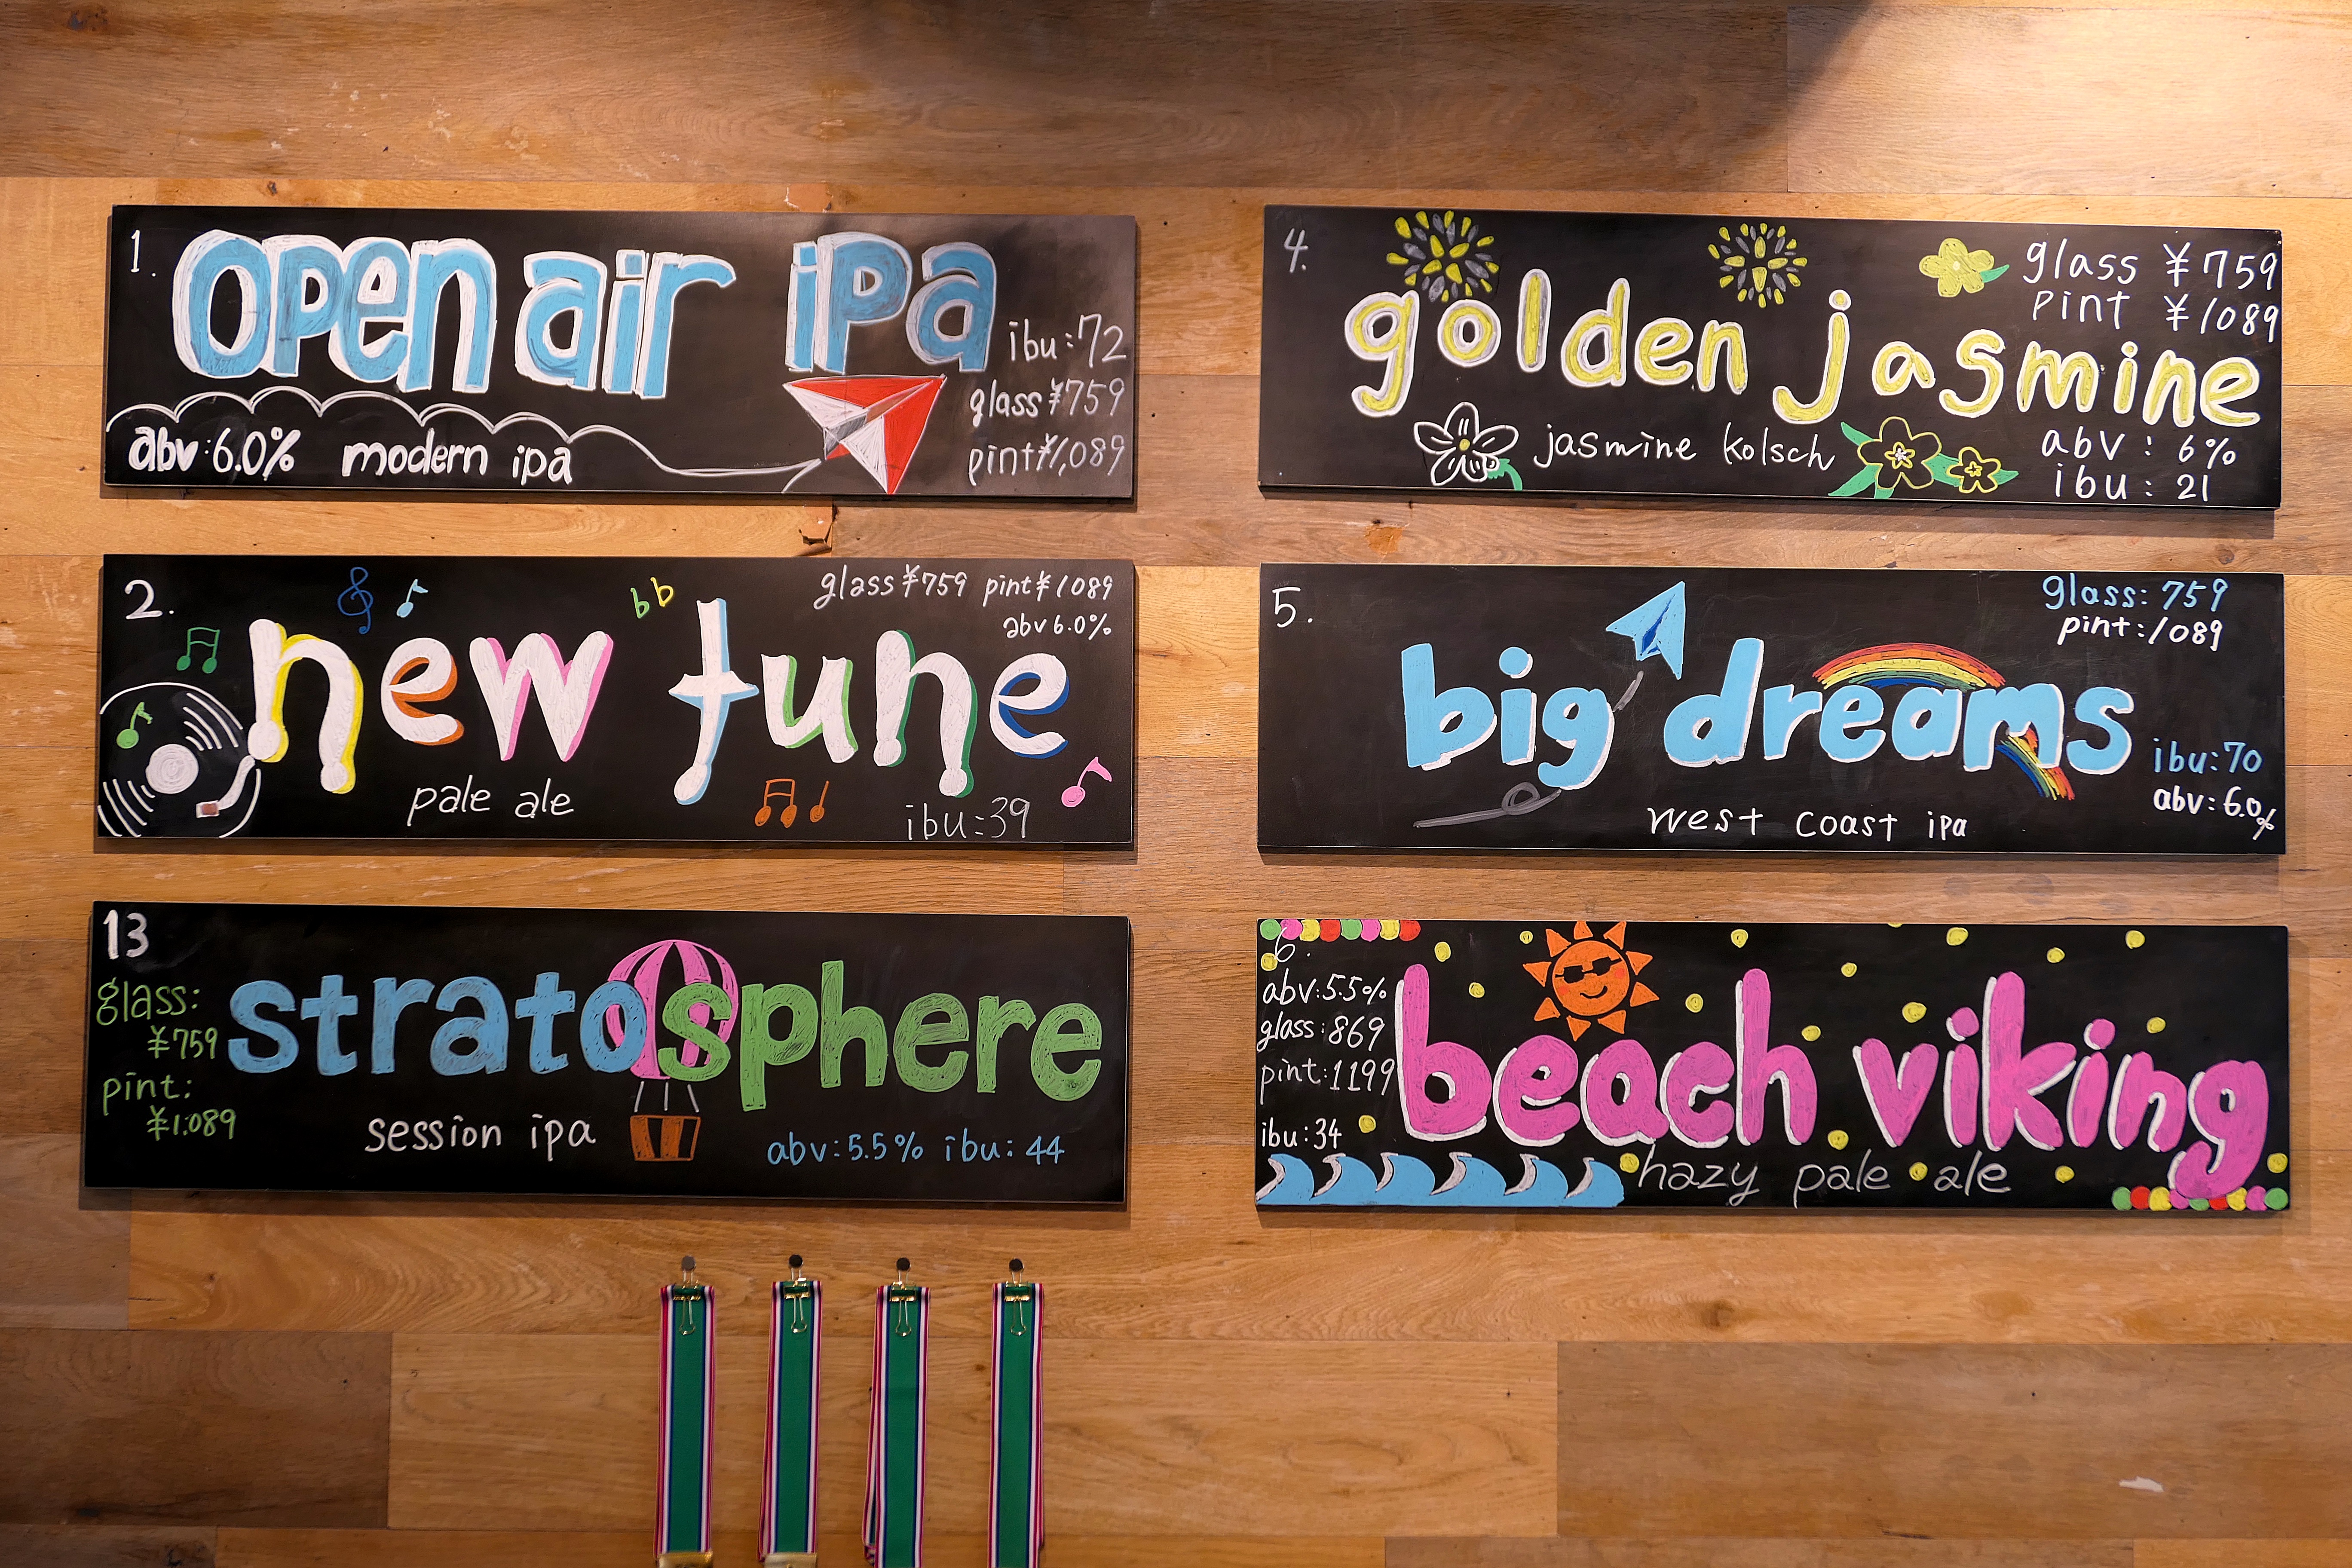 1.
open air ipa
ibu:72
glass ¥759
pint ¥1,089
abv:6.0% modern ipa
2.
glass ¥759 pint ¥1089
abv 6.0%
new tune
pale ale
ibu:39
13
glass:
¥759
pint:
¥1.089
stratosphere
session ipa
abv:5.5% ibu:44
4.
glass ¥759
pint ¥1089
golden jasmine
jasmine kolsch
abv: 6%
ibu: 21
5.
glass: 759
pint:1089
big dreams
ibu:70
abv:6.0%
west coast ipa
6.
abv:5.5%
glass:869
pint:1199
ibu:34
beach viking
hazy pale ale